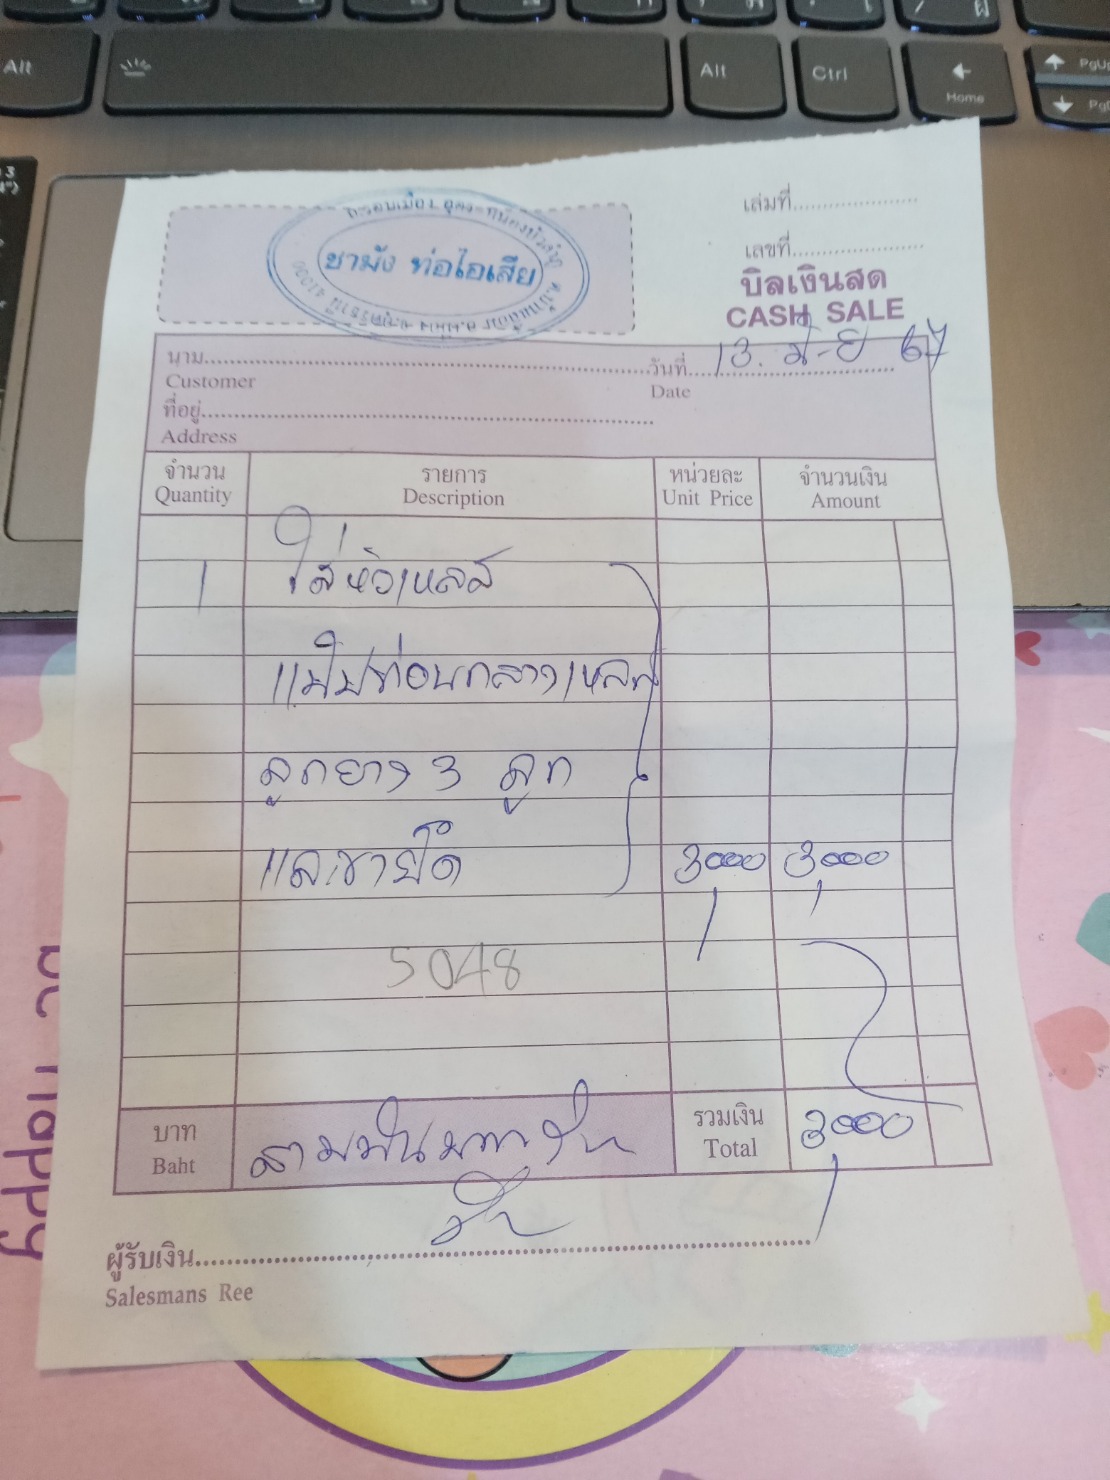 Alt
Alt
Ctrl
Home
PgUp
เล่มที่
เลขที่
ชามัง ท่อไอเสีย
บิลเงินสด
CASH SALE
นาม
วันที่ 13. มิ-ย 67
Customer
Date
ที่อยู่
Address
จำนวน รายการ หน่วยละ จำนวนเงิน
Quantity Description Unit Price Amount
1 ใส่หัวเหลส
แป๊ปท่อนกลางเหลส
ลูกยาง 3 ลูก
และขายึด 3000 3,000
5048
บาท สามพันบาทถ้วน รวมเงิน 3,000
Baht Total
ผู้รับเงิน
Salesmans Ree
be happy